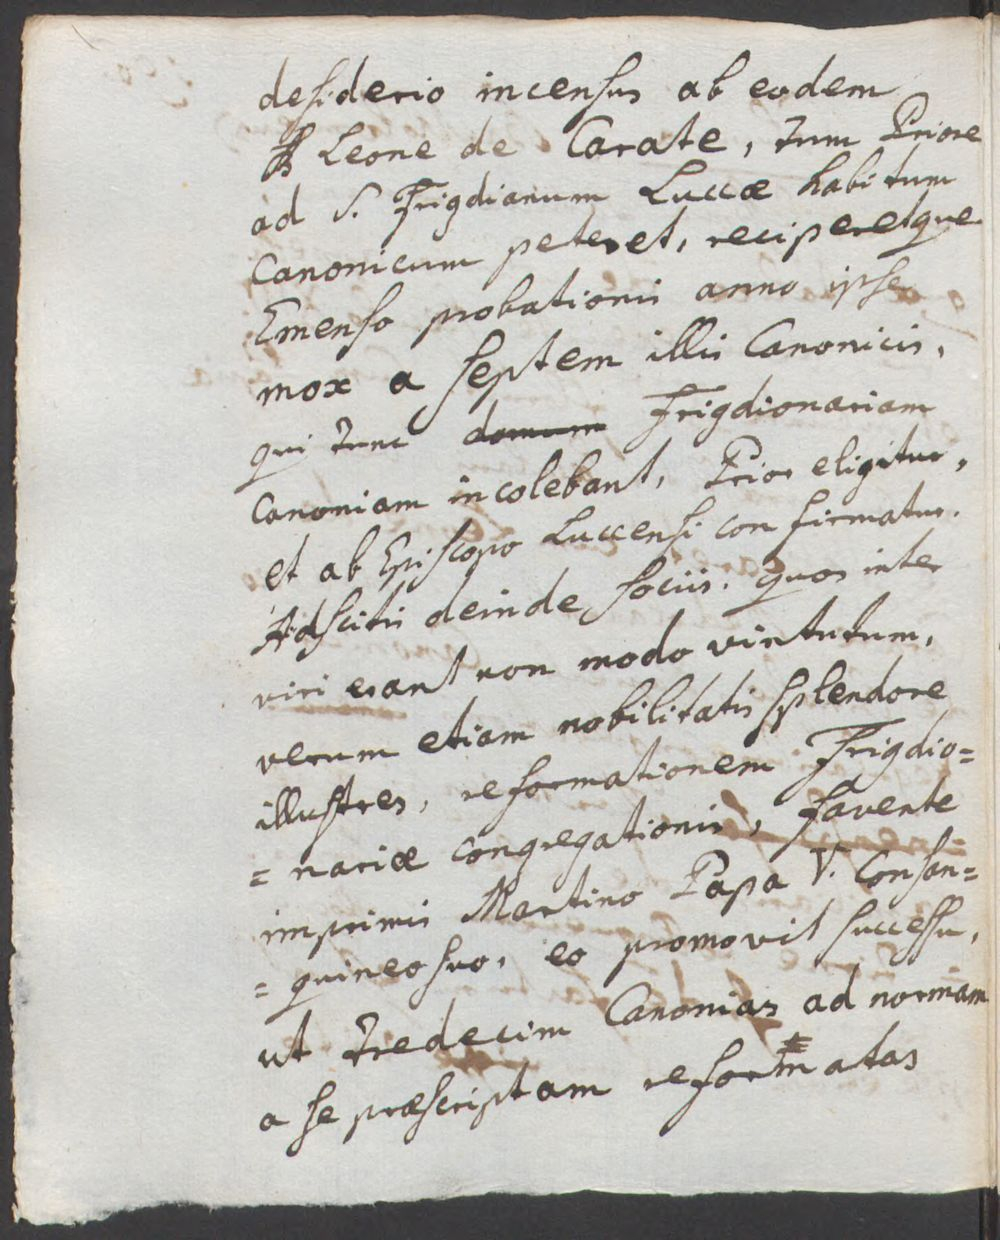 desiderio incensus ab eodem
Leone de Carate, tum Priore
ad S. Frigdianum Luccæ habitum
Canonicum peteret, reciperetque
Emenso probationis anno ipse
mox a septem illis Canonicis,
qui tunc domum Frigdionariam
Canoniam incolebant, Prior eligitur,
et ab Episcopo Luccensi confirmatur.
Adscitis deinde sociis. quos inter
viri erant non modo virtutum,
verum etiam nobilitatis splendore
illustres, reformationem Frigdio=
= nariæ congregationis, favente
imprimis Martino Papa V. Consan=
= quineo suo, eo promovit successu,
ut tredecim Canonias ad normam
a se præscriptam reformatas